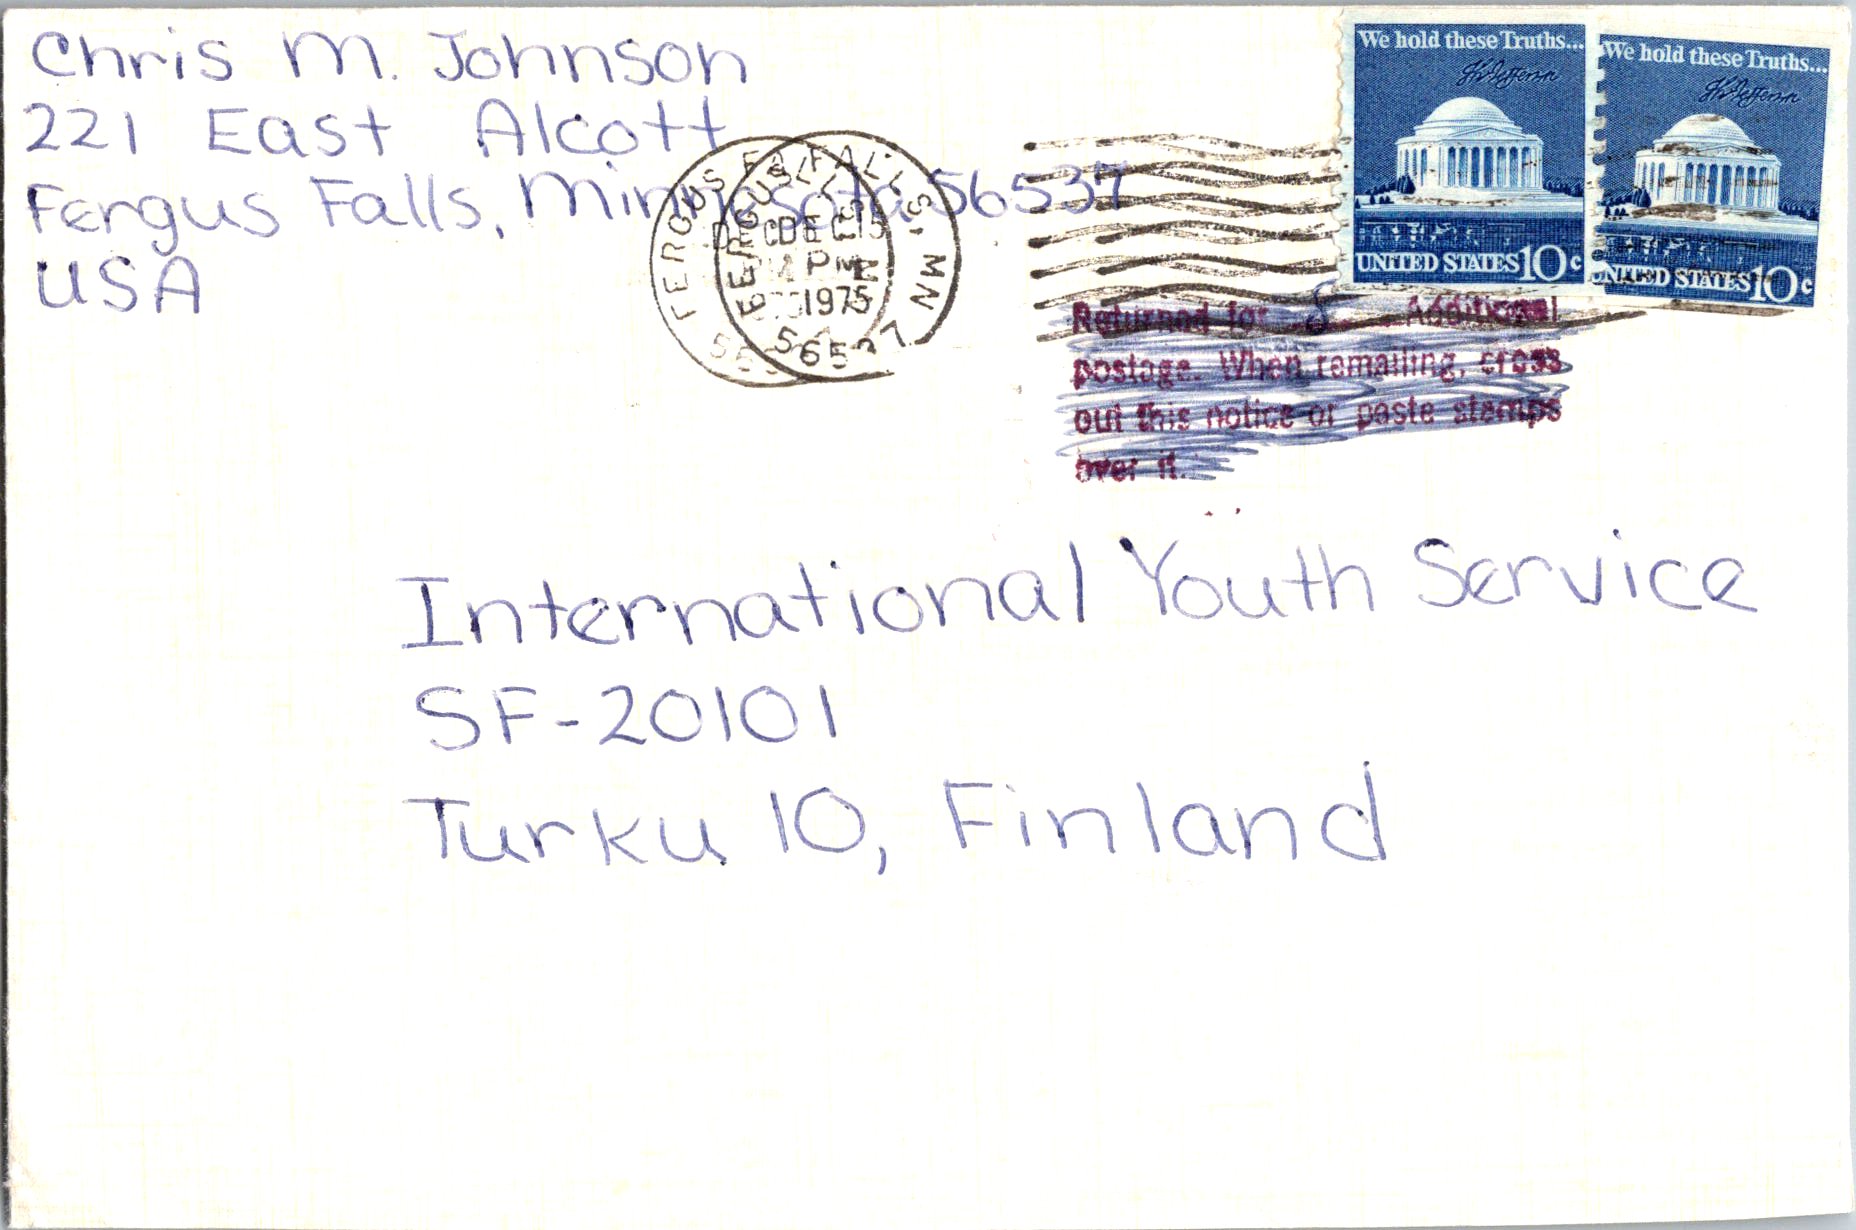 Chris M. Johnson
221 East Alcott
Fergus Falls, Minnesota 56537
USA
FERGUS FALLS, MN
DEC 15
PM
1975
56537
We hold these Truths...
Th Jefferson
UNITED STATES 10c
We hold these Truths...
Th Jefferson
UNITED STATES 10c
Returned for Additional
postage. When remailing, cross
out this notice or paste stamps
over it.
International Youth Service
SF-20101
Turku 10, Finland